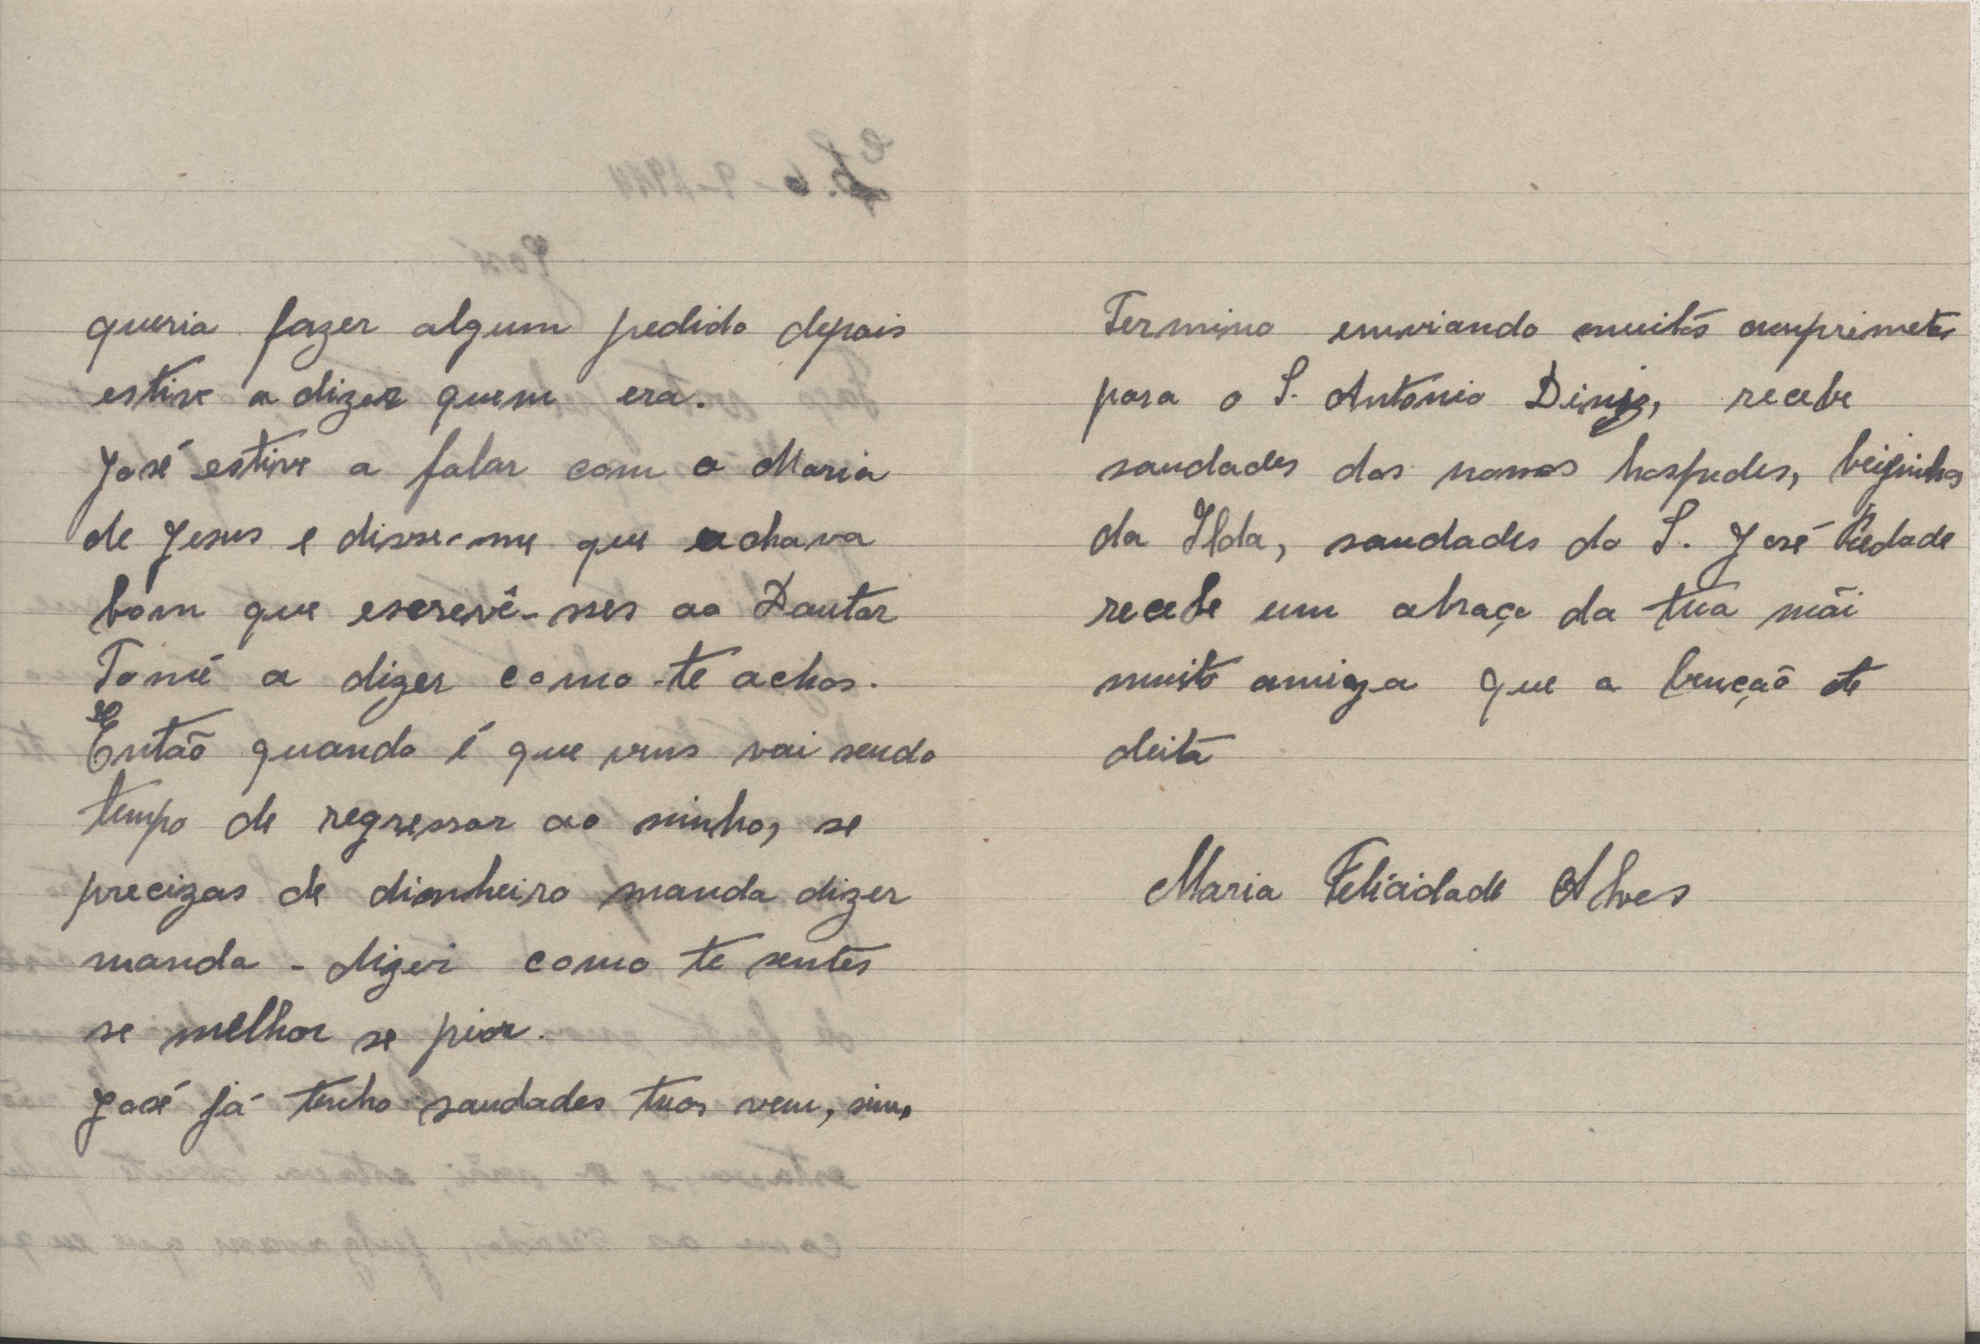 queria fazer algum pedido depois
estive a dizer quem era.
José estive a falar com a Maria
de Jesus e disse-me que achava
bom que escrevê-sses ao Doutor
Tomé a dizer como-te achas.
Então quando é que vens vai sendo
tempo de regressar ao ninho, se
precizas de dinheiro manda dizer
manda-dizer como te sentes
se melhor se pior.
José já tenho saudades tuas vem, sim.
Termino enviando muitos cumprimetos
para o S. Antonio Diniz, recebe
saudades dos nossos hospedes, beijinhos
da Ilda, saudades do S. José Piedade
recebe um abraço da tua mãi
muito amiga que a bença͂o te
deita
Maria Felicidade Alves